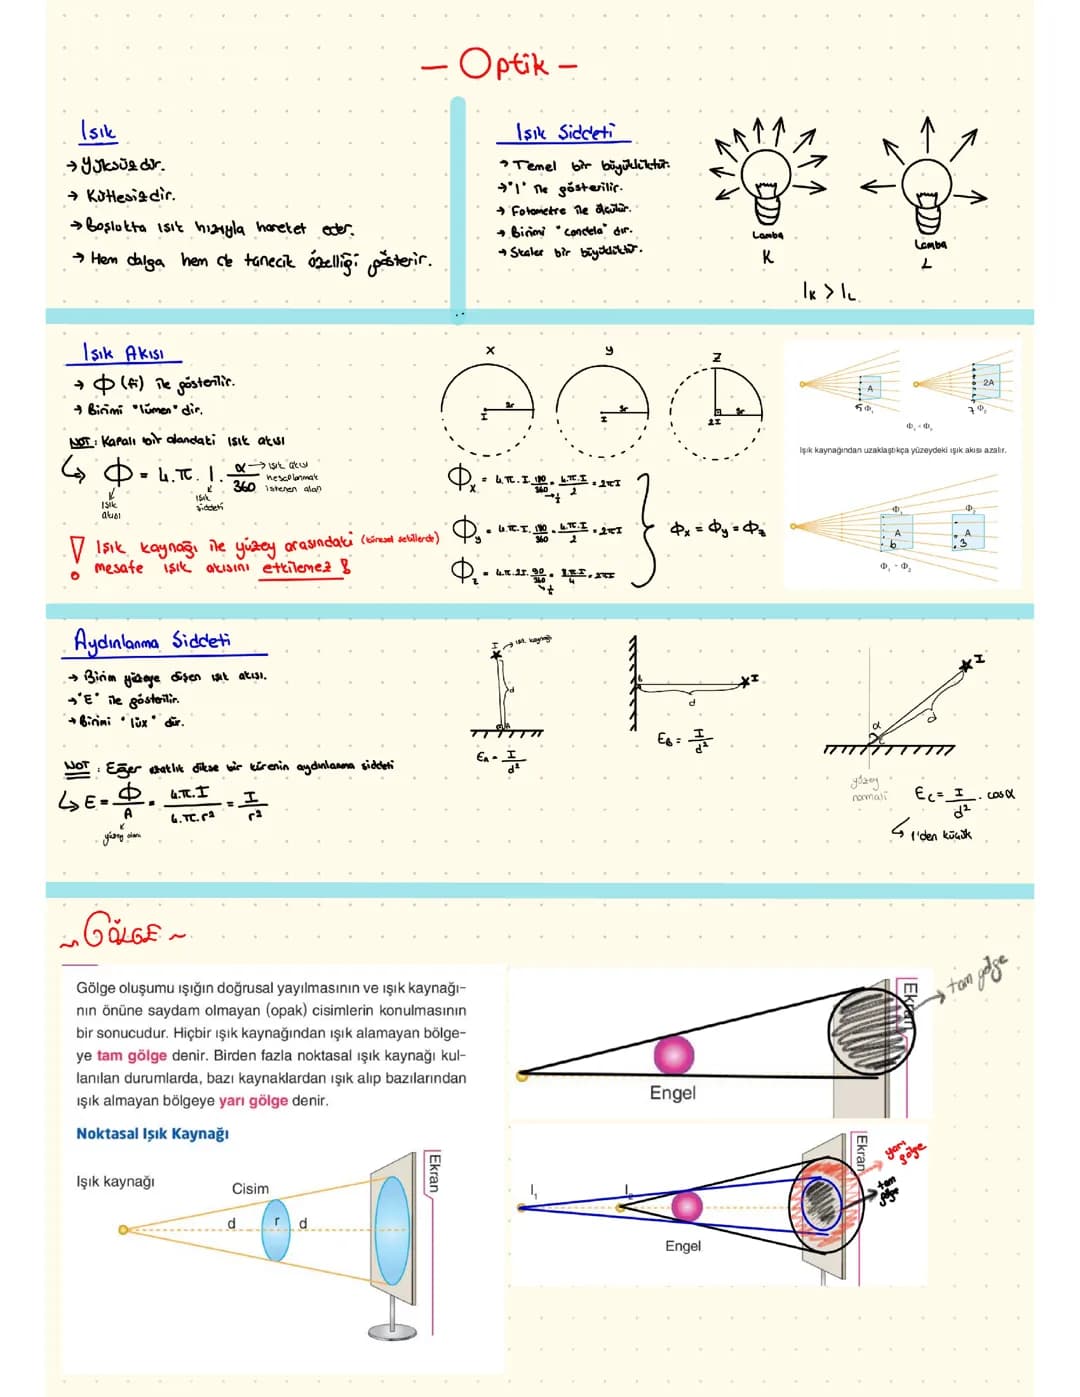 - Optik -
Işık
→ Yüksüzdür.
→ Kütlesizdir.
→ Boşlukta ışık hızıyla hareket eder.
→ Hem dalga hem de tanecik özelliği gösterir.
Işık Şiddeti
→ Temel bir büyüklüktür.
→ "I" ile gösterilir.
→ Fotometre ile ölçülür.
→ Birimi "candela" dır.
→ Skaler bir büyüklüktür.
Lamba
K
Lamba
L
IK > IL
Işık Akısı
→ Φ (fi) ile gösterilir.
→ Birimi "lümen" dir.
NOT: Kapalı bir alandaki ışık akısı
↳ Φ = 4.π. I. α/360
→ ışık akısı
hesaplanmak
istenen alan
ışık
akısı
ışık
şiddeti
! Işık kaynağı ile yüzey arasındaki (küresel şekillerde)
mesafe ışık akısını etkilemez !
x
I
2r
y
I
Z
2I
Φx = 4.π.I. 180/360 = 4.π.I/2 = 2πI
Φy = 4.π.I. 180/360 = 4.π.I/2 = 2πI
Φz = 4.π.2I. 90/360 = 8.π.I/4 = 2πI
Φx = Φy = Φz
A
5 Φ₁
2A
7 Φ₂
Işık kaynağından uzaklaştıkça yüzeydeki ışık akısı azalır.
Φ₁
A
6
Φ₂
A
3
Aydınlanma Şiddeti
→ Birim yüzeye düşen ışık akısı.
→ "E" ile gösterilir.
→ Birimi "lüx" dür.
NOT: Eğer ışık dikse bir kürenin aydınlanma şiddeti
↳ E = Φ/A = 4.π.I/4.π.r² = I/r²
yüzey alanı
I → ışık kaynağı
d
A
EA = I/d²
B
I
d
EB = I/d²
I
α
d
yüzey
normali
EC = I/d² . cosα
↳ 1'den küçük
~ GÖLGE ~
Gölge oluşumu ışığın doğrusal yayılmasının ve ışık kaynağı-
nın önüne saydam olmayan (opak) cisimlerin konulmasının
bir sonucudur. Hiçbir ışık kaynağından ışık alamayan bölge-
ye tam gölge denir. Birden fazla noktasal ışık kaynağı kul-
lanılan durumlarda, bazı kaynaklardan ışık alıp bazılarından
ışık almayan bölgeye yarı gölge denir.
Noktasal Işık Kaynağı
Işık kaynağı
Cisim
d
r
d
Ekran
Engel
Ekran
→ tam gölge
I₁
I₂
Engel
Ekran
yarı
gölge
tam
gölge